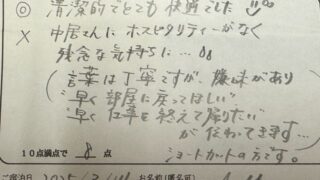 ◎ 清潔的でとても快適でした
× 中居さんにホスピタリティーがなく
残念な気持ちに…
(言葉は丁寧ですが、嫌味があり
"早く部屋に戻ってほしい"
"早く仕事を終えて帰りたい"
が伝わってきます…
10点満点で 8 点 ショートカットの方です。)
ご宿泊日 2025/3/ お名前(匿名可)